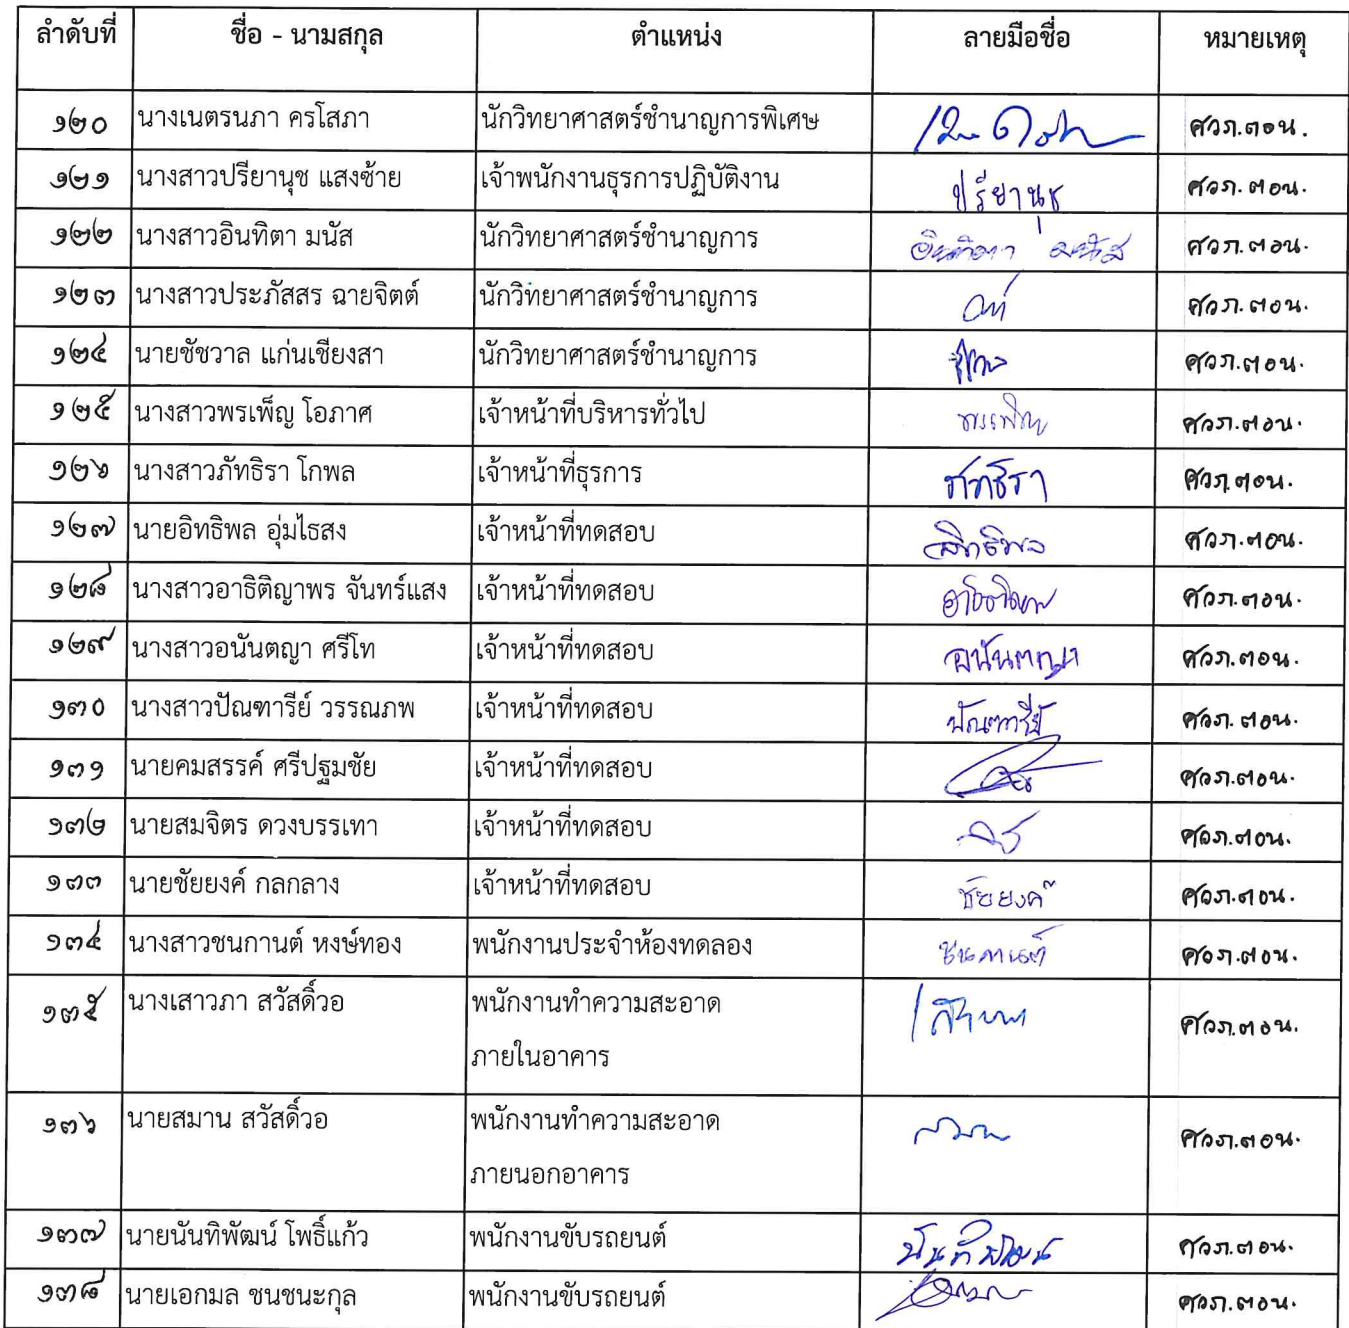 ลำดับที่ ชื่อ - นามสกุล ตำแหน่ง ลายมือชื่อ หมายเหตุ
๑๒๐ นางเนตรนภา ครโสภา นักวิทยาศาสตร์ชำนาญการพิเศษ ศวภ.ตอน.
๑๒๑ นางสาวปรียานุช แสงซ้าย เจ้าพนักงานธุรการปฏิบัติงาน ปรียานุช ศวภ.ตอน.
๑๒๒ นางสาวอินทิตา มนัส นักวิทยาศาสตร์ชำนาญการ อินทิตา มนัส ศวภ.ตอน.
๑๒๓ นางสาวประภัสสร ฉายจิตต์ นักวิทยาศาสตร์ชำนาญการ ศวภ.ตอน.
๑๒๔ นายชัชวาล แก่นเชียงสา นักวิทยาศาสตร์ชำนาญการ ศวภ.ตอน.
๑๒๕ นางสาวพรเพ็ญ โอภาศ เจ้าหน้าที่บริหารทั่วไป พรเพ็ญ ศวภ.ตอน.
๑๒๖ นางสาวภัทธิรา โกพล เจ้าหน้าที่ธุรการ ภัทธิรา ศวภ.ตอน.
๑๒๗ นายอิทธิพล อุ่มไธสง เจ้าหน้าที่ทดสอบ อิทธิพล ศวภ.ตอน.
๑๒๘ นางสาวอาธิติญาพร จันทร์แสง เจ้าหน้าที่ทดสอบ ศวภ.ตอน.
๑๒๙ นางสาวอนันตญา ศรีโท เจ้าหน้าที่ทดสอบ อนันตญา ศวภ.ตอน.
๑๓๐ นางสาวปัณฑารีย์ วรรณภพ เจ้าหน้าที่ทดสอบ ปัณฑารีย์ ศวภ.ตอน.
๑๓๑ นายคมสรรค์ ศรีปฐมชัย เจ้าหน้าที่ทดสอบ ศวภ.ตอน.
๑๓๒ นายสมจิตร ดวงบรรเทา เจ้าหน้าที่ทดสอบ ศวภ.ตอน.
๑๓๓ นายชัยยงค์ กลกลาง เจ้าหน้าที่ทดสอบ ชัยยงค์ ศวภ.ตอน.
๑๓๔ นางสาวชนกานต์ หงษ์ทอง พนักงานประจำห้องทดลอง ชนกานต์ ศวภ.ตอน.
๑๓๕ นางเสาวภา สวัสดิ์วอ พนักงานทำความสะอาด ศวภ.ตอน.
ภายในอาคาร
๑๓๖ นายสมาน สวัสดิ์วอ พนักงานทำความสะอาด สมาน ศวภ.ตอน.
ภายนอกอาคาร
๑๓๗ นายนันทิพัฒน์ โพธิ์แก้ว พนักงานขับรถยนต์ นันทิพัฒน์ ศวภ.ตอน.
๑๓๘ นายเอกมล ชนชนะกุล พนักงานขับรถยนต์ ศวภ.ตอน.